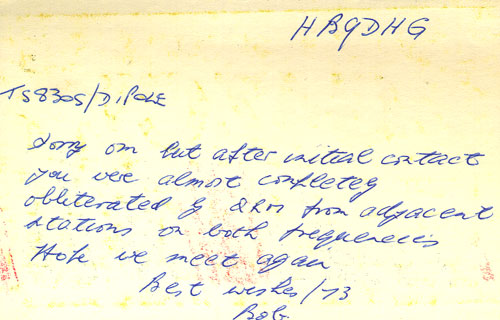 HB9DHG
TS830S/DIPOLE
Sorry om but after initial contact
you were almost completey
obliterated by QRM from adjacent
stations on both frequencies
Hope we meet again
Best wishes/73
Bob